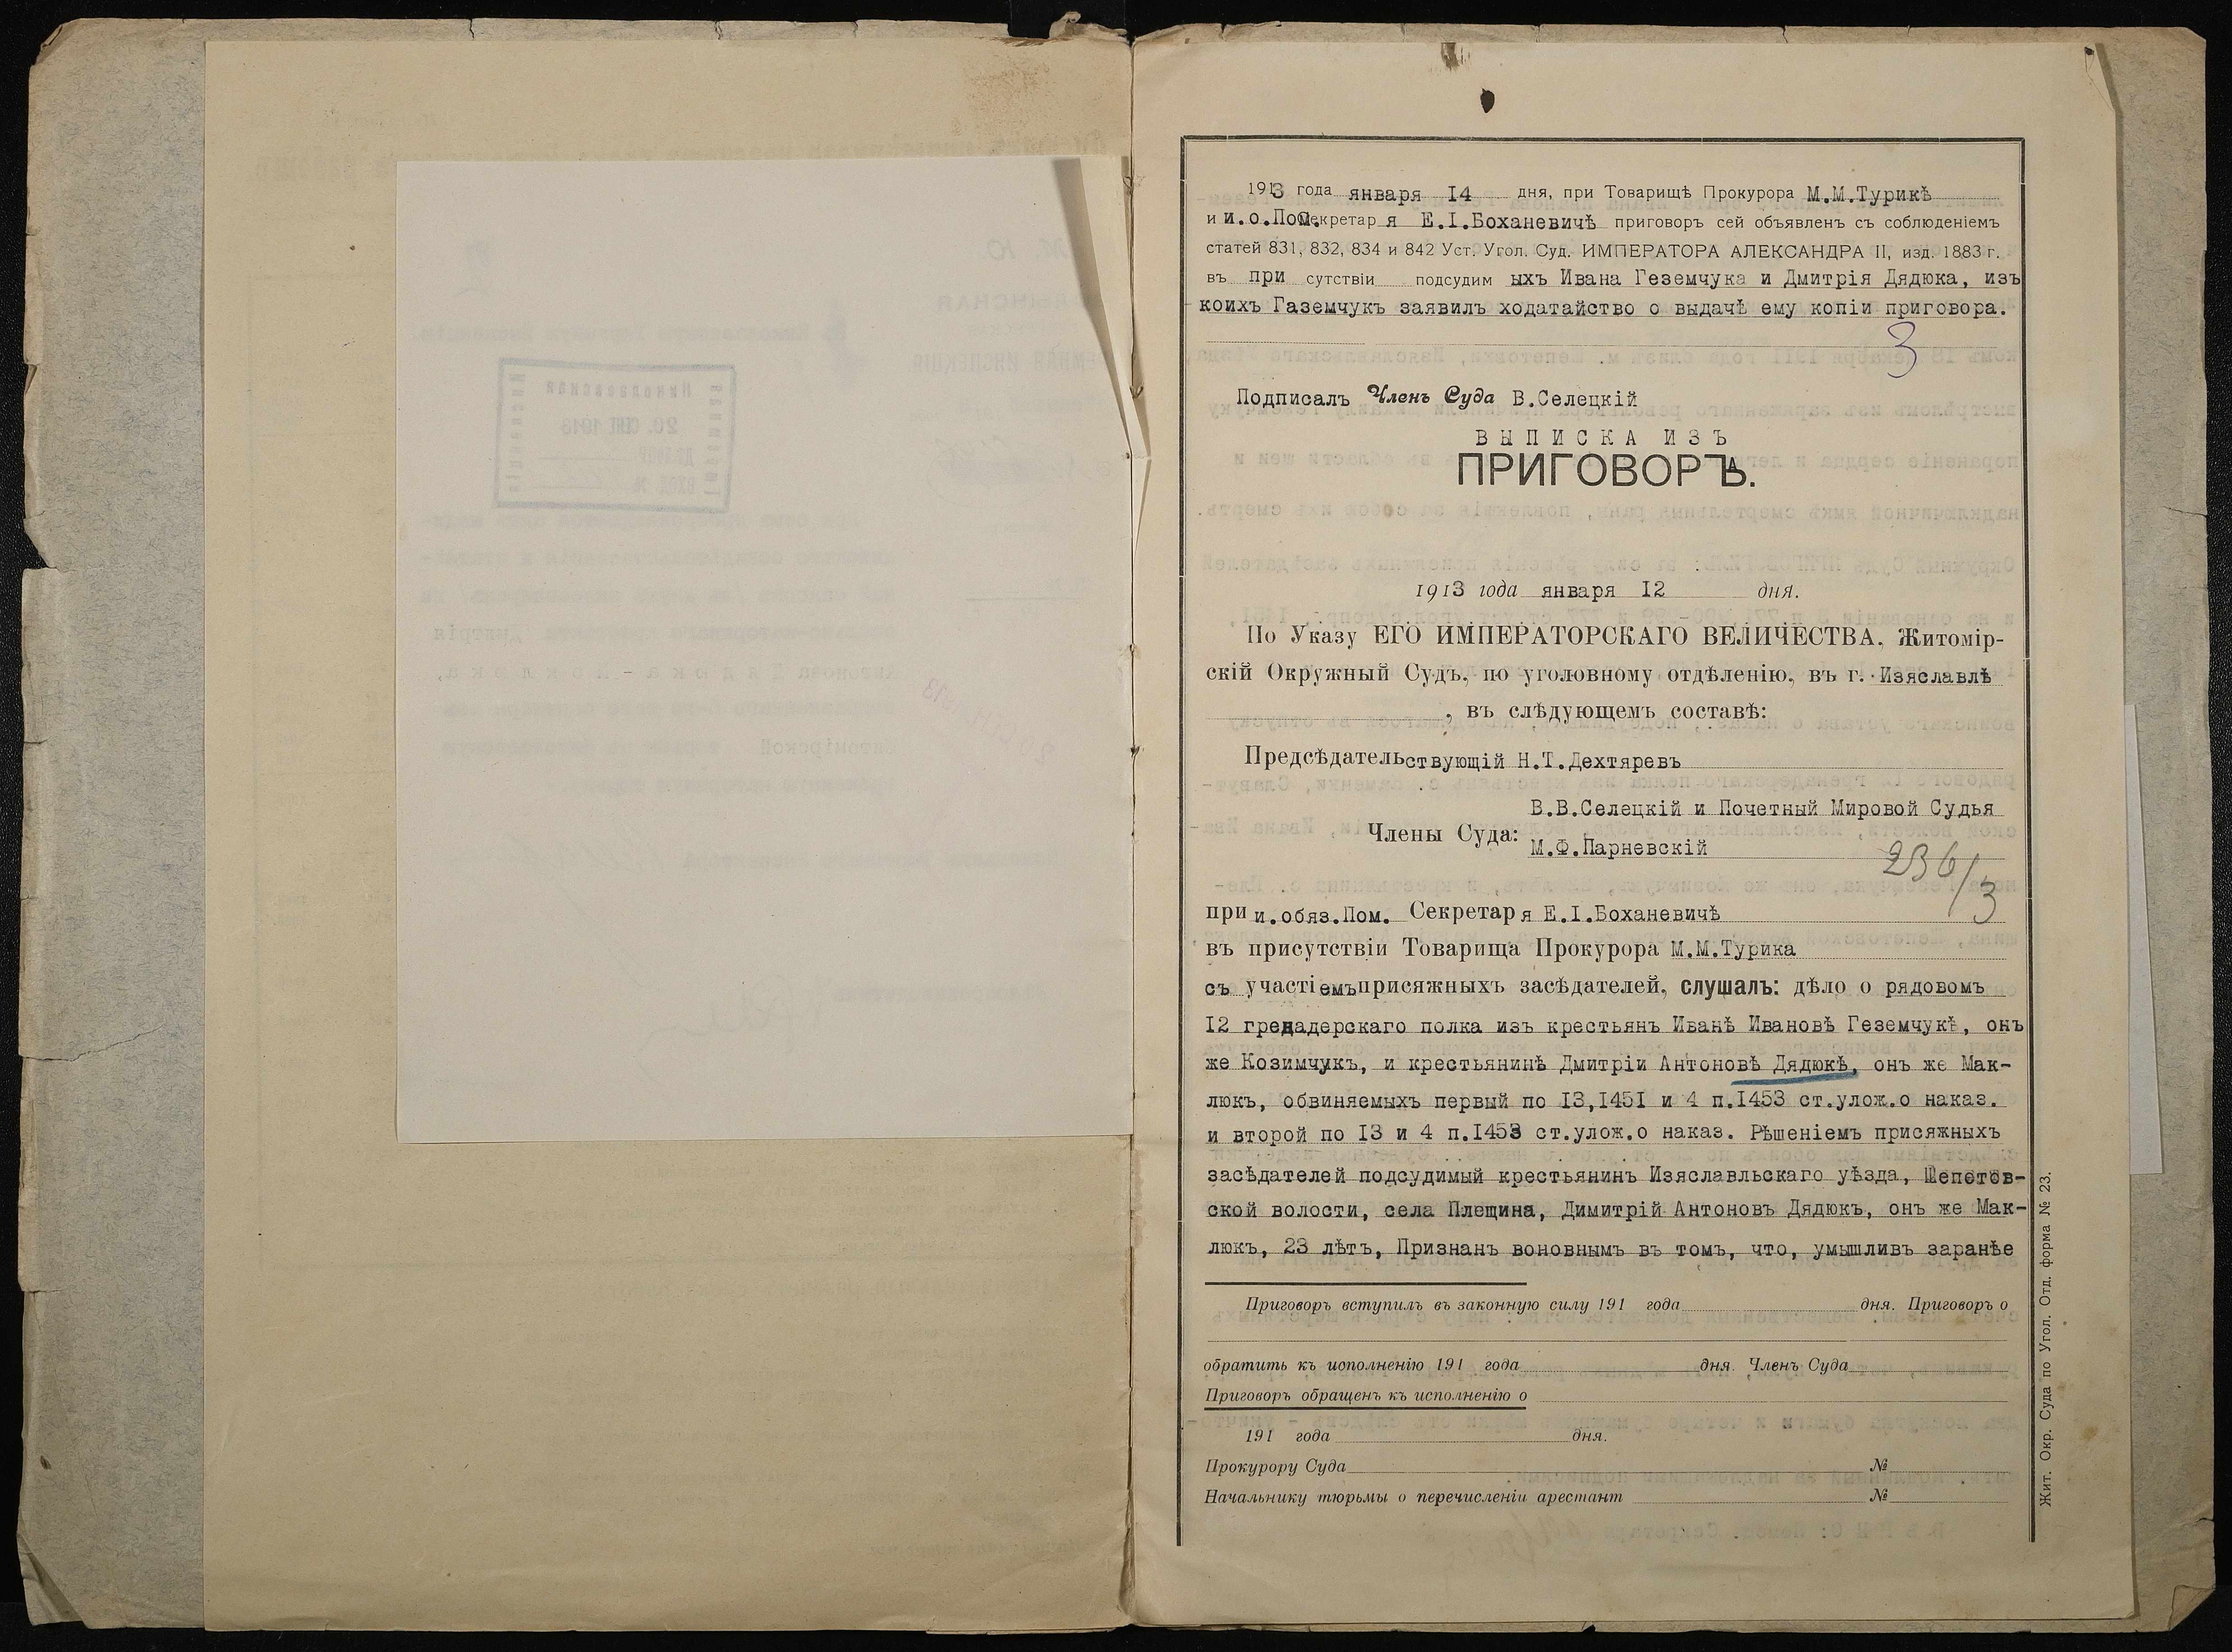 1913 года января 14 дня, при Товарищѣ Прокурора М.М.Турикѣ
и и.о.Пом.Секретаря Е.І.Боханевичѣ приговоръ сей объявленъ съ соблюденіемъ
статей 831, 832, 834 и 842 Уст. Угол. Суд. ИМПЕРАТОРА АЛЕКСАНДРА II, изд. 1883 г.
въ присутствіи подсудимыхъ Ивана Геземчука и Дмитрія Дядюка, изъ
коихъ Газемчукъ заявилъ ходатайство о выдачѣ ему копіи приговора.
3
Подписалъ Членъ Суда В.Селецкій
ВЫПИСКА ИЗЪ
ПРИГОВОРА.
1913 года января 12 дня.
По Указу ЕГО ИМПЕРАТОРСКАГО ВЕЛИЧЕСТВА, Житомір-
скій Окружный Судъ, по уголовному отдѣленію, въ г. Изяславлѣ
, въ слѣдующемъ составѣ:
Предсѣдательствующій Н.Т.Дехтяревъ
В.В.Селецкій и Почетный Мировой Судья
Члены Суда:
М.Ф.Парневскій
236/3
при и.обяз.Пом. Секретаря Е.І.Боханевичѣ
въ присутствіи Товарища Прокурора М.М.Турика
съ участіемъ присяжныхъ засѣдателей, слушалъ: дѣло о рядовомъ
12 гренадерскаго полка изъ крестьянъ Иванѣ Ивановѣ Геземчукѣ, онъ
же Козимчукъ, и крестьянинѣ Дмитріи Антоновѣ Дядюкѣ, онъ же Мак-
люкъ, обвиняемыхъ первый по 13,1451 и 4 п.1453 ст.улож.о наказ.
и второй по 13 и 4 п.1453 ст.улож.о наказ. Рѣшеніемъ присяжныхъ
засѣдателей подсудимый крестьянинъ Изяславльскаго уѣзда, Шепетов-
ской волости, села Плещина, Димитрій Антоновъ Дядюкъ, онъ же Мак-
люкъ, 23 лѣтъ, Признанъ воновнымъ въ томъ, что, умышливъ заранѣе
Приговоръ вступилъ въ законную силу 191 года дня. Приговоръ о
обратить къ исполненію 191 года дня. Членъ Суда
Приговоръ обращенъ къ исполненію о
191 года дня.
Прокурору Суда №
Начальнику тюрьмы о перечисленіи арестант №
Жит. Окр. Суда по Угол. Отд. форма № 23.